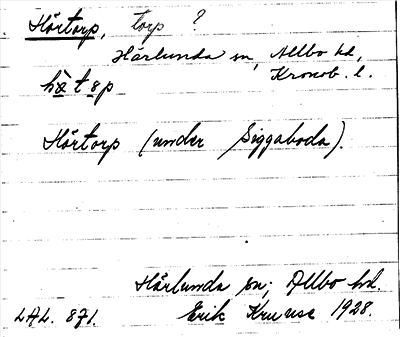 Hörtorp, torp ?
Härlunda sn, Allbo hd,
Kronob. l.
Hörtorp (under Siggaboda).
Härlunda sn; Allbo hd.
LAL. 871. Erik Kruuse 1928.